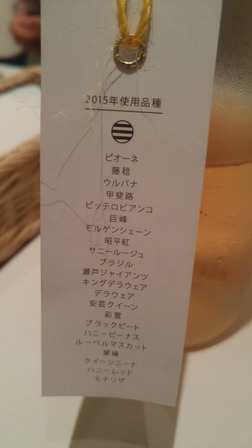 2015年使用品種
ピオーネ
藤稔
ウルバナ
甲斐路
ピッテロビアンコ
巨峰
モルゲンシェーン
昭平紅
サニールージュ
ブラジル
瀬戸ジャイアンツ
キングデラウェア
デラウェア
安芸クイーン
彩雲
ブラックビート
ハニービーナス
ルーベルマスカット
クイーンニーナ
ハニーレッド
モナリザ